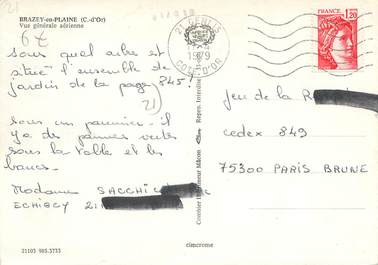 21
BRAZEY-en-PLAINE (C.-d'Or)
Vue générale aérienne
6f
sous quel arbre est
situé l'ensemble de
jardin de la page 845!
21
sous un paumier. il
y a des paniers verts
sous la table et les
bancs.
Madame SACCHI
ECHIGEY 21
21103 985.3733
cimcrome
Combier Imprimeur Mâcon
Repro. Interdite
21 GENLIS
1979
COTE-D'OR
1,20
jeu de la R
cedex 849
75300 PARIS BRUNE